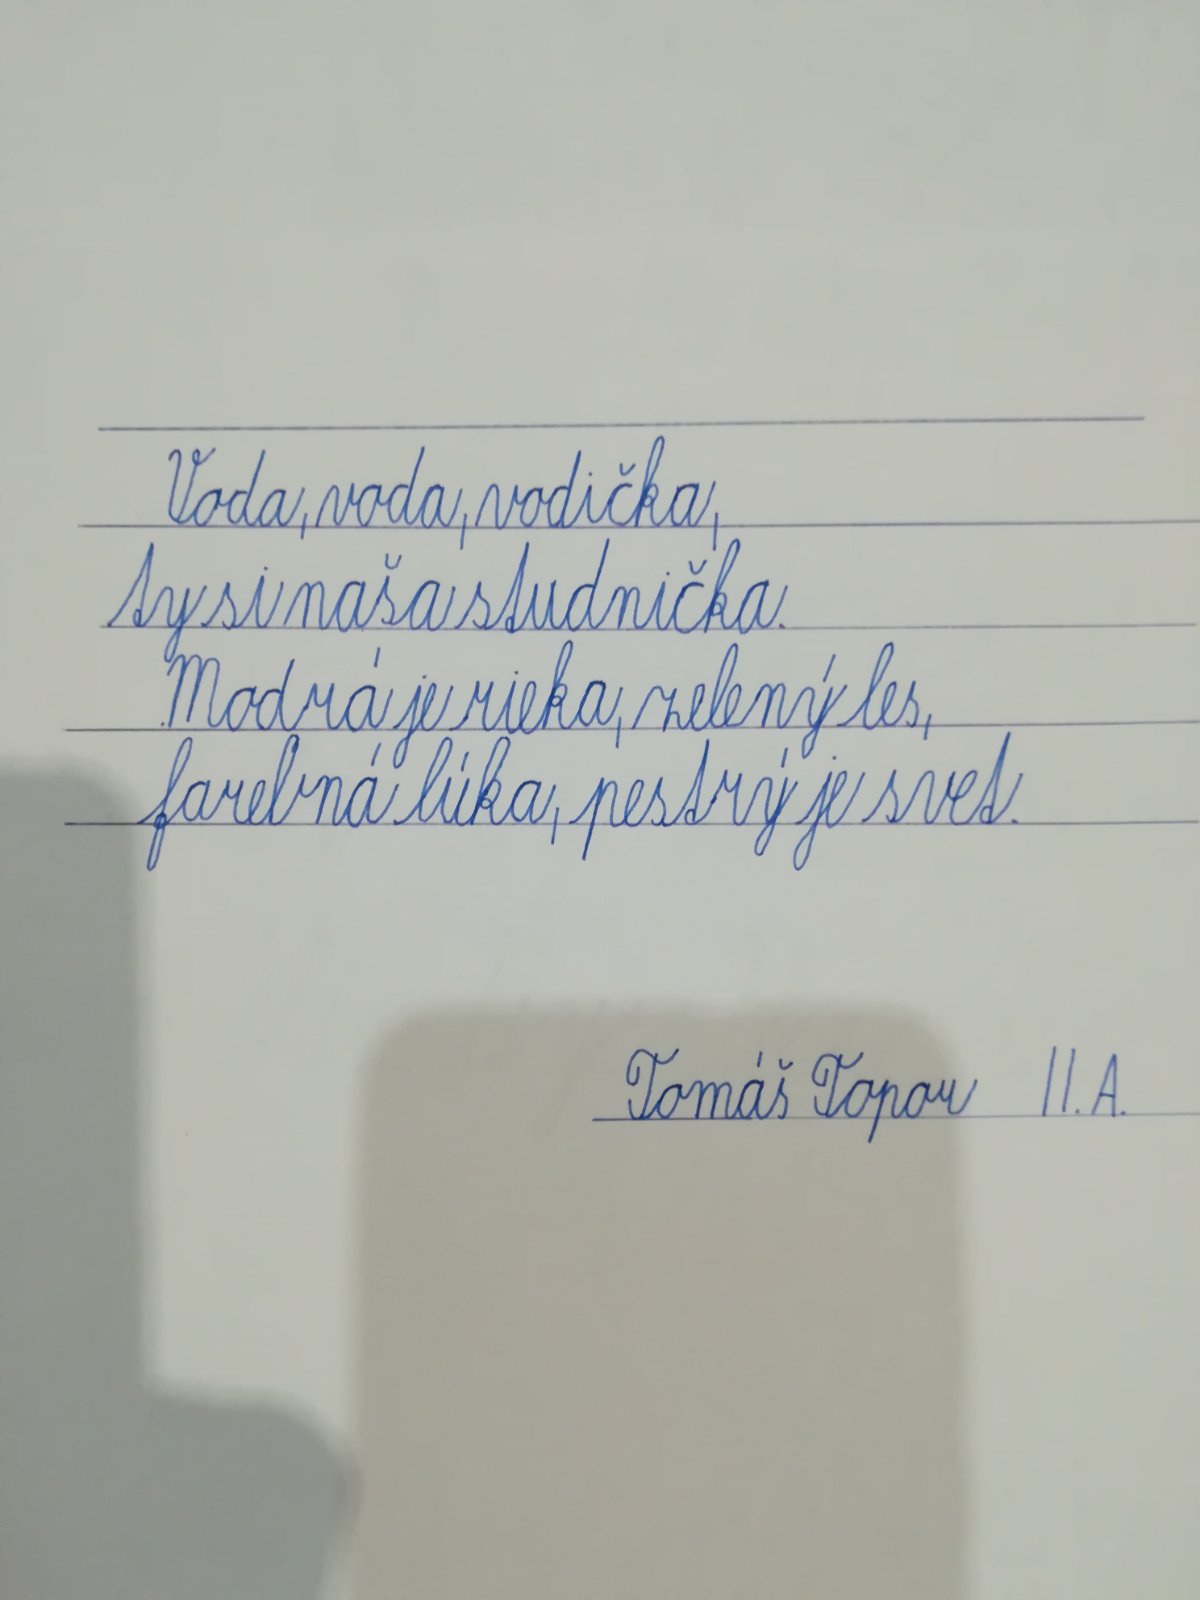 Voda, voda, vodička,
ty si naša studnička.
Modrá je rieka, zelený les,
farebná lúka, pestrý je svet.
Tomáš Topor II. A.